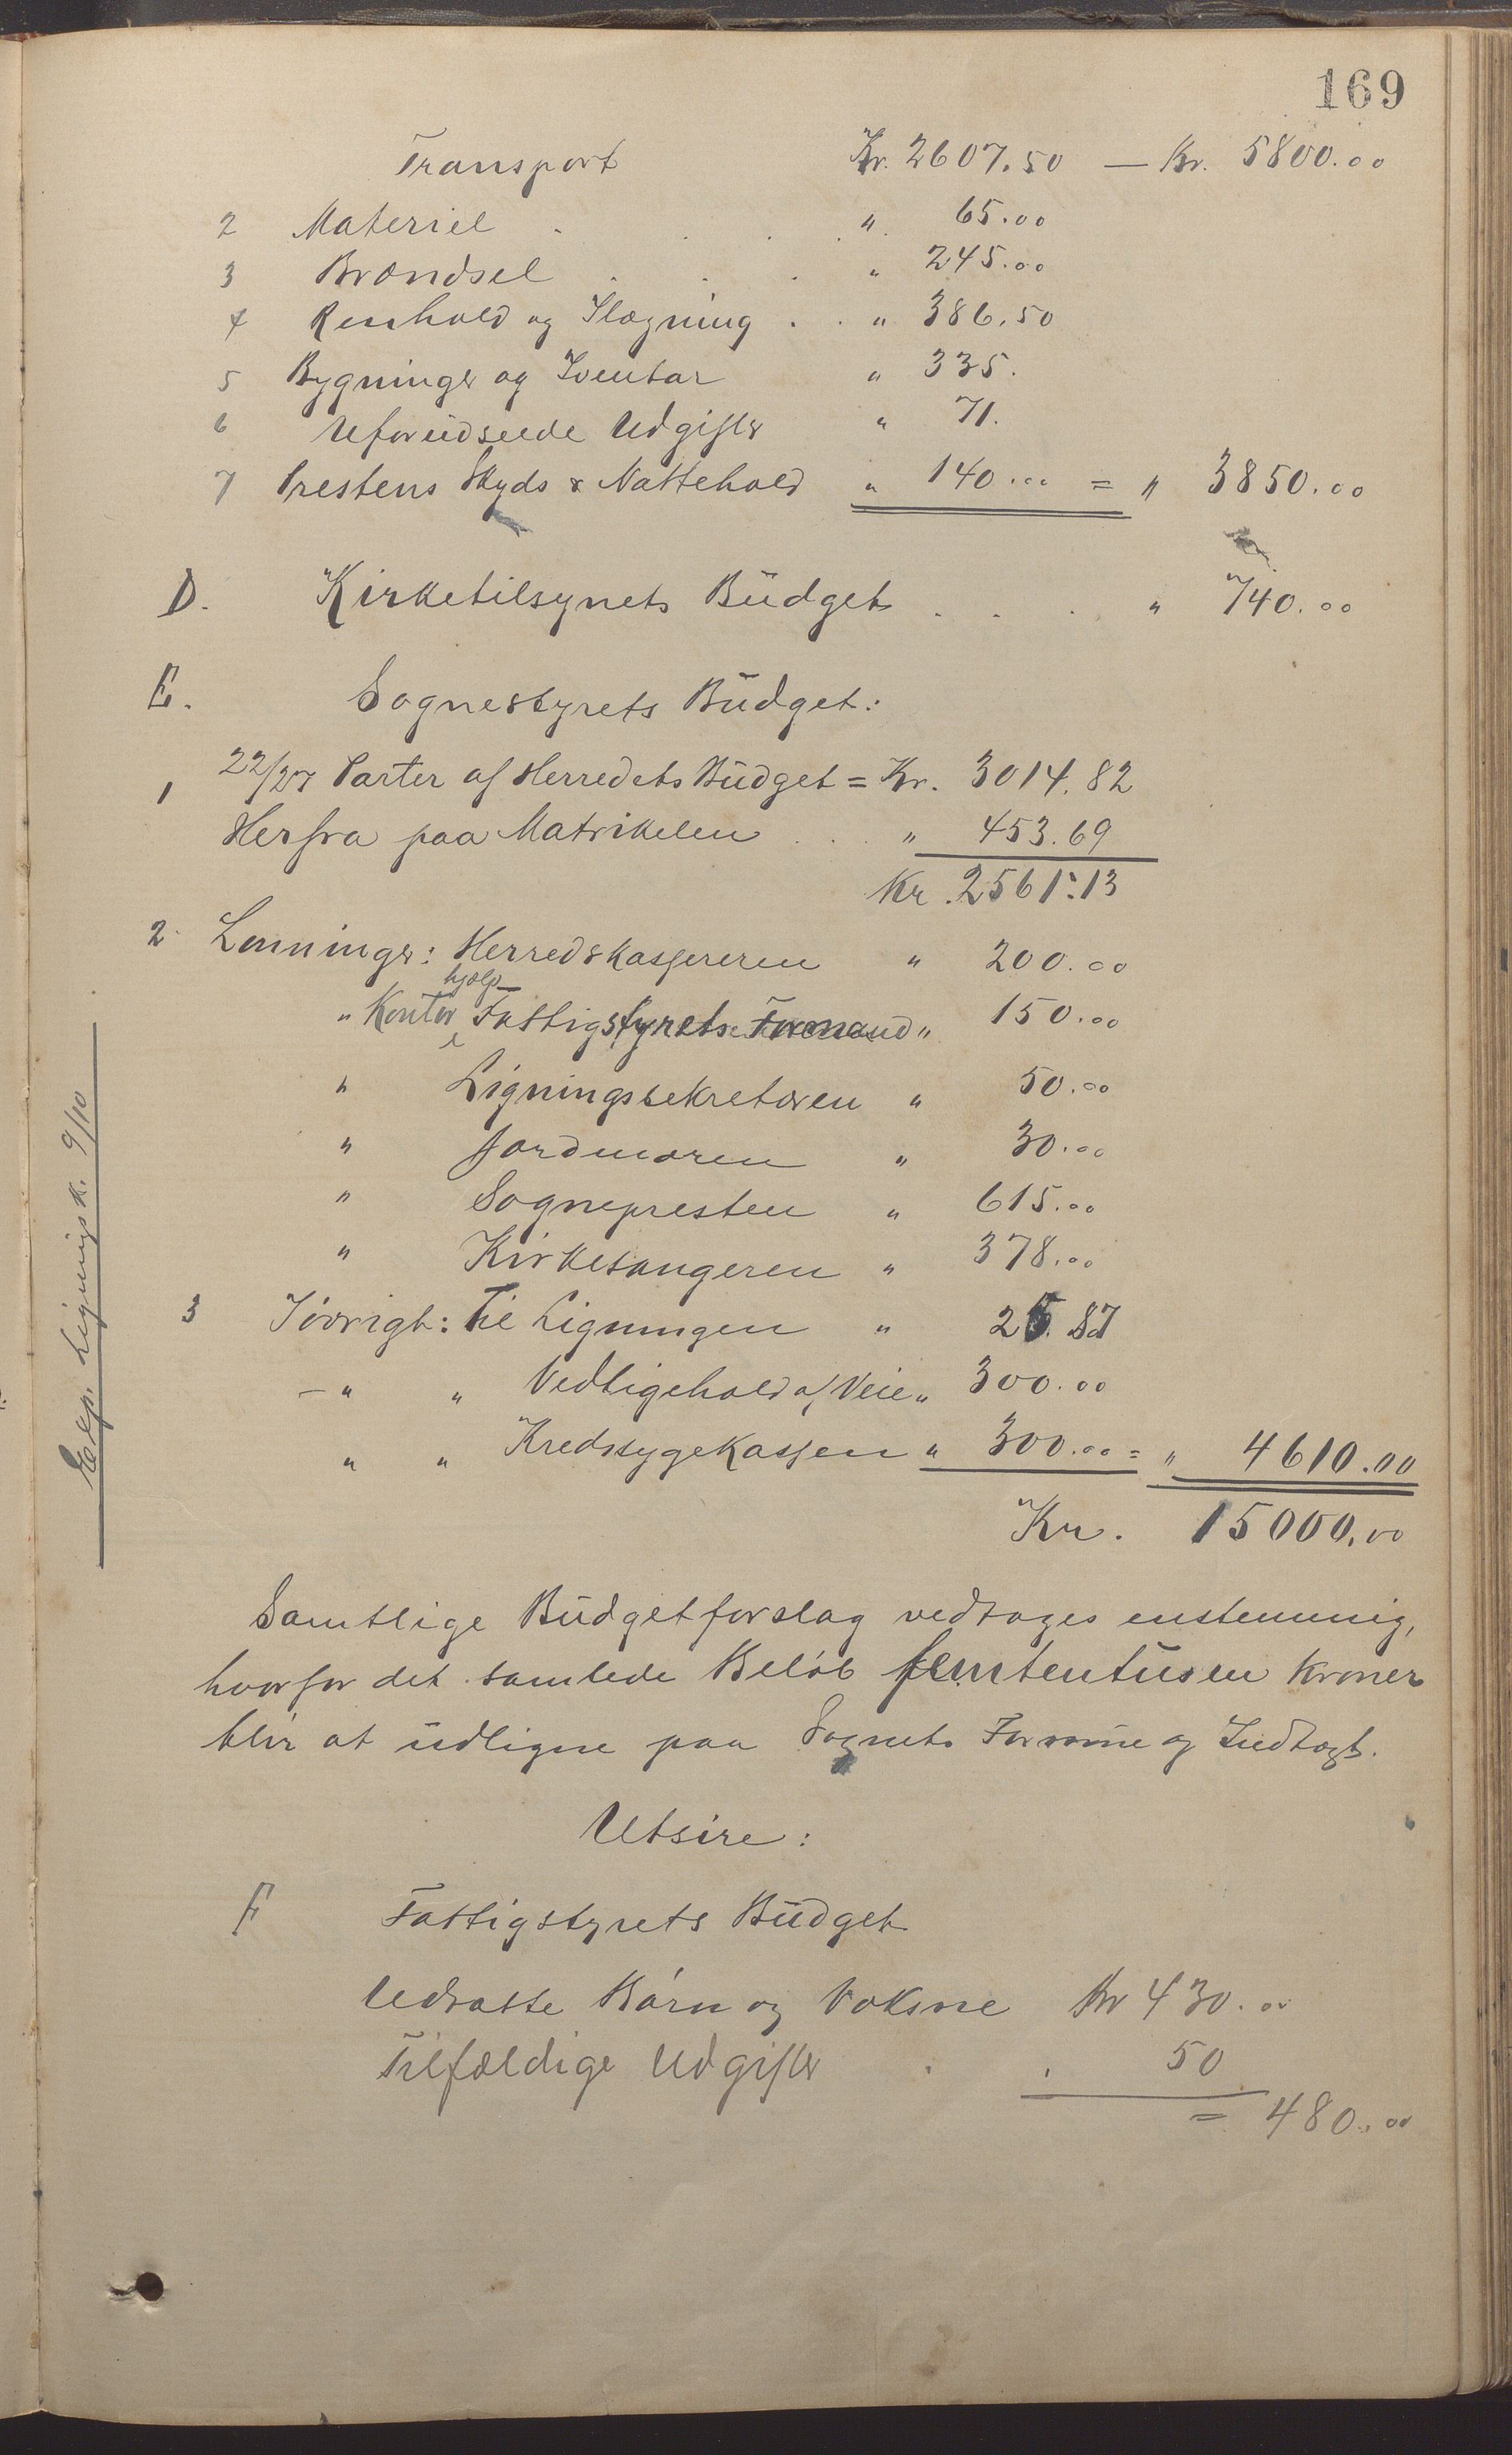 169
Transport Kr. 2607.50 — Kr. 5800.00
2 Materiel . . . . " 65.00
3 Brændsel . . . " 245.00
4 Renhold og Ilægning . . " 386.50
5 Bygninger og Iventar " 335.
6 Uforudseede Udgifter " 71.
7 Prestens Skyds & Nattehold " 140.00 = " 3850.00
D. Kirketilsynets Büdget . . . " 740.00
E. Sognestyrets Büdget:
1 22/27 Parter af Herredets Büdget = Kr. 3014.82
Herfra paa Matrikelen . . . " 453.69
Kr. 2561.13
2 Lønninger: Herredskassereren " 200.00
hjælp
" Kontor Fattigstyrets Formand " 150.00
" Ligningssekretæren " 50.00
" Jordmoren " 30.00
" Sognepresten " 615.00
" Kirkesangeren " 378.00
3 Iøvrigt: Til Ligningen " 25.87
— " " Vedligehold af Veie " 300.00
" " Kredssygekassen " 300.00 = " 4610.00
Kr. 15000.00
Exp. Ligningsk. 9/10
Samtlige Büdgetforslag vedtoges enstemmig,
hvorfor det samlede Beløb femtentusen Kroner
blir at üdligne paa Sognets Formue og Indtægt.
Utsire:
F Fattigstyrets Büdget
Udsatte Børn og Voksne Kr 430.00
Tilfældige Udgifter . . 50
= 480.00